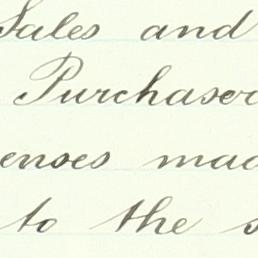 Sales and
Purchaser
enses mad
to the s